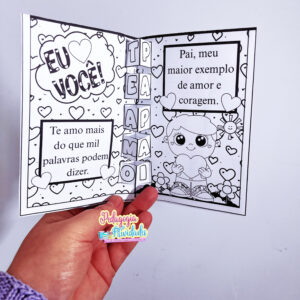 EU
VOCÊ!
Te amo mais
do que mil
palavras podem
dizer.
TEAMO
PAPAI
Pai, meu
maior exemplo
de amor e
coragem.
Pedagogia
Atividade